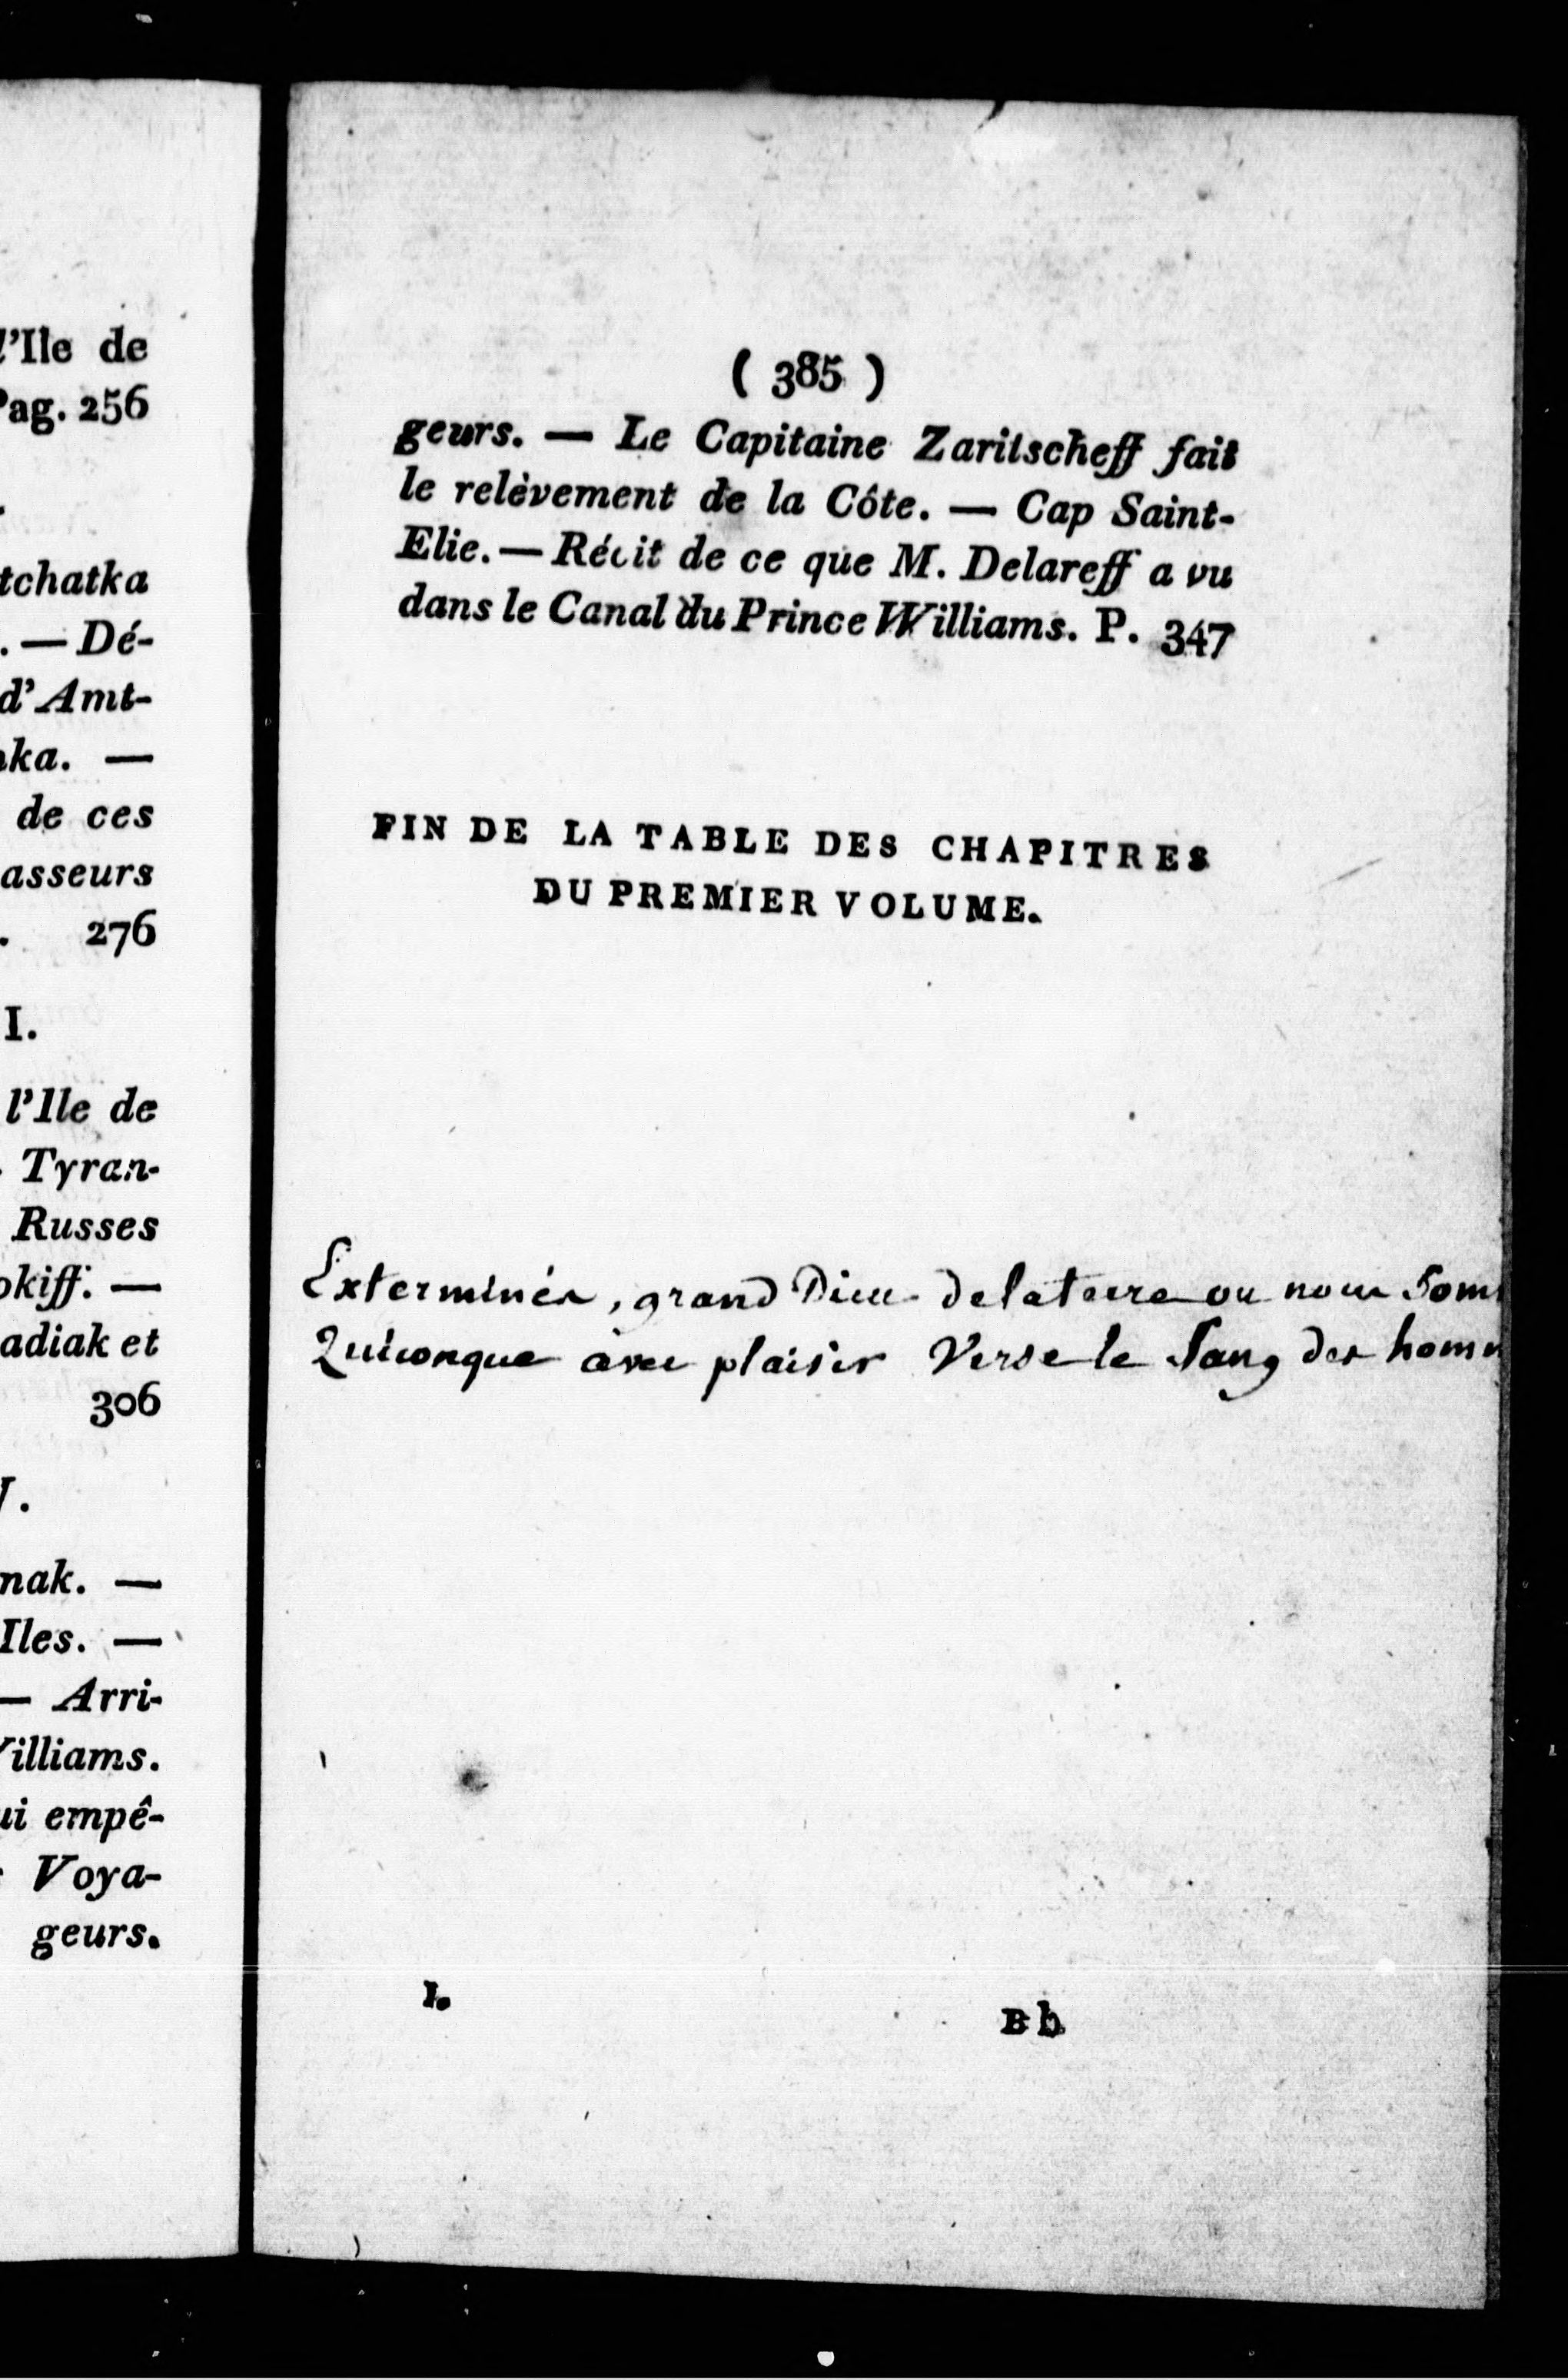 l'Ile de
Pag. 256
tchatka
. — Dé-
d'Amt-
ka. —
de ces
asseurs
276
I.
l'Ile de
Tyran-
Russes
okiff. —
adiak et
306
V.
nak. —
Iles. —
— Arri-
Villiams.
ui empê-
Voya-
geurs.
( 385 )
geurs. — Le Capitaine Zaritscheff fait
le relèvement de la Côte. — Cap Saint-
Elie. — Récit de ce que M. Delareff a vu
dans le Canal du Prince Williams. P. 347
FIN DE LA TABLE DES CHAPITRES
DU PREMIER VOLUME.
Exterminés, grand Dieu de la terre ou nous som
Quiconque avec plaisir Verse le Sang des homm
I.
Bb